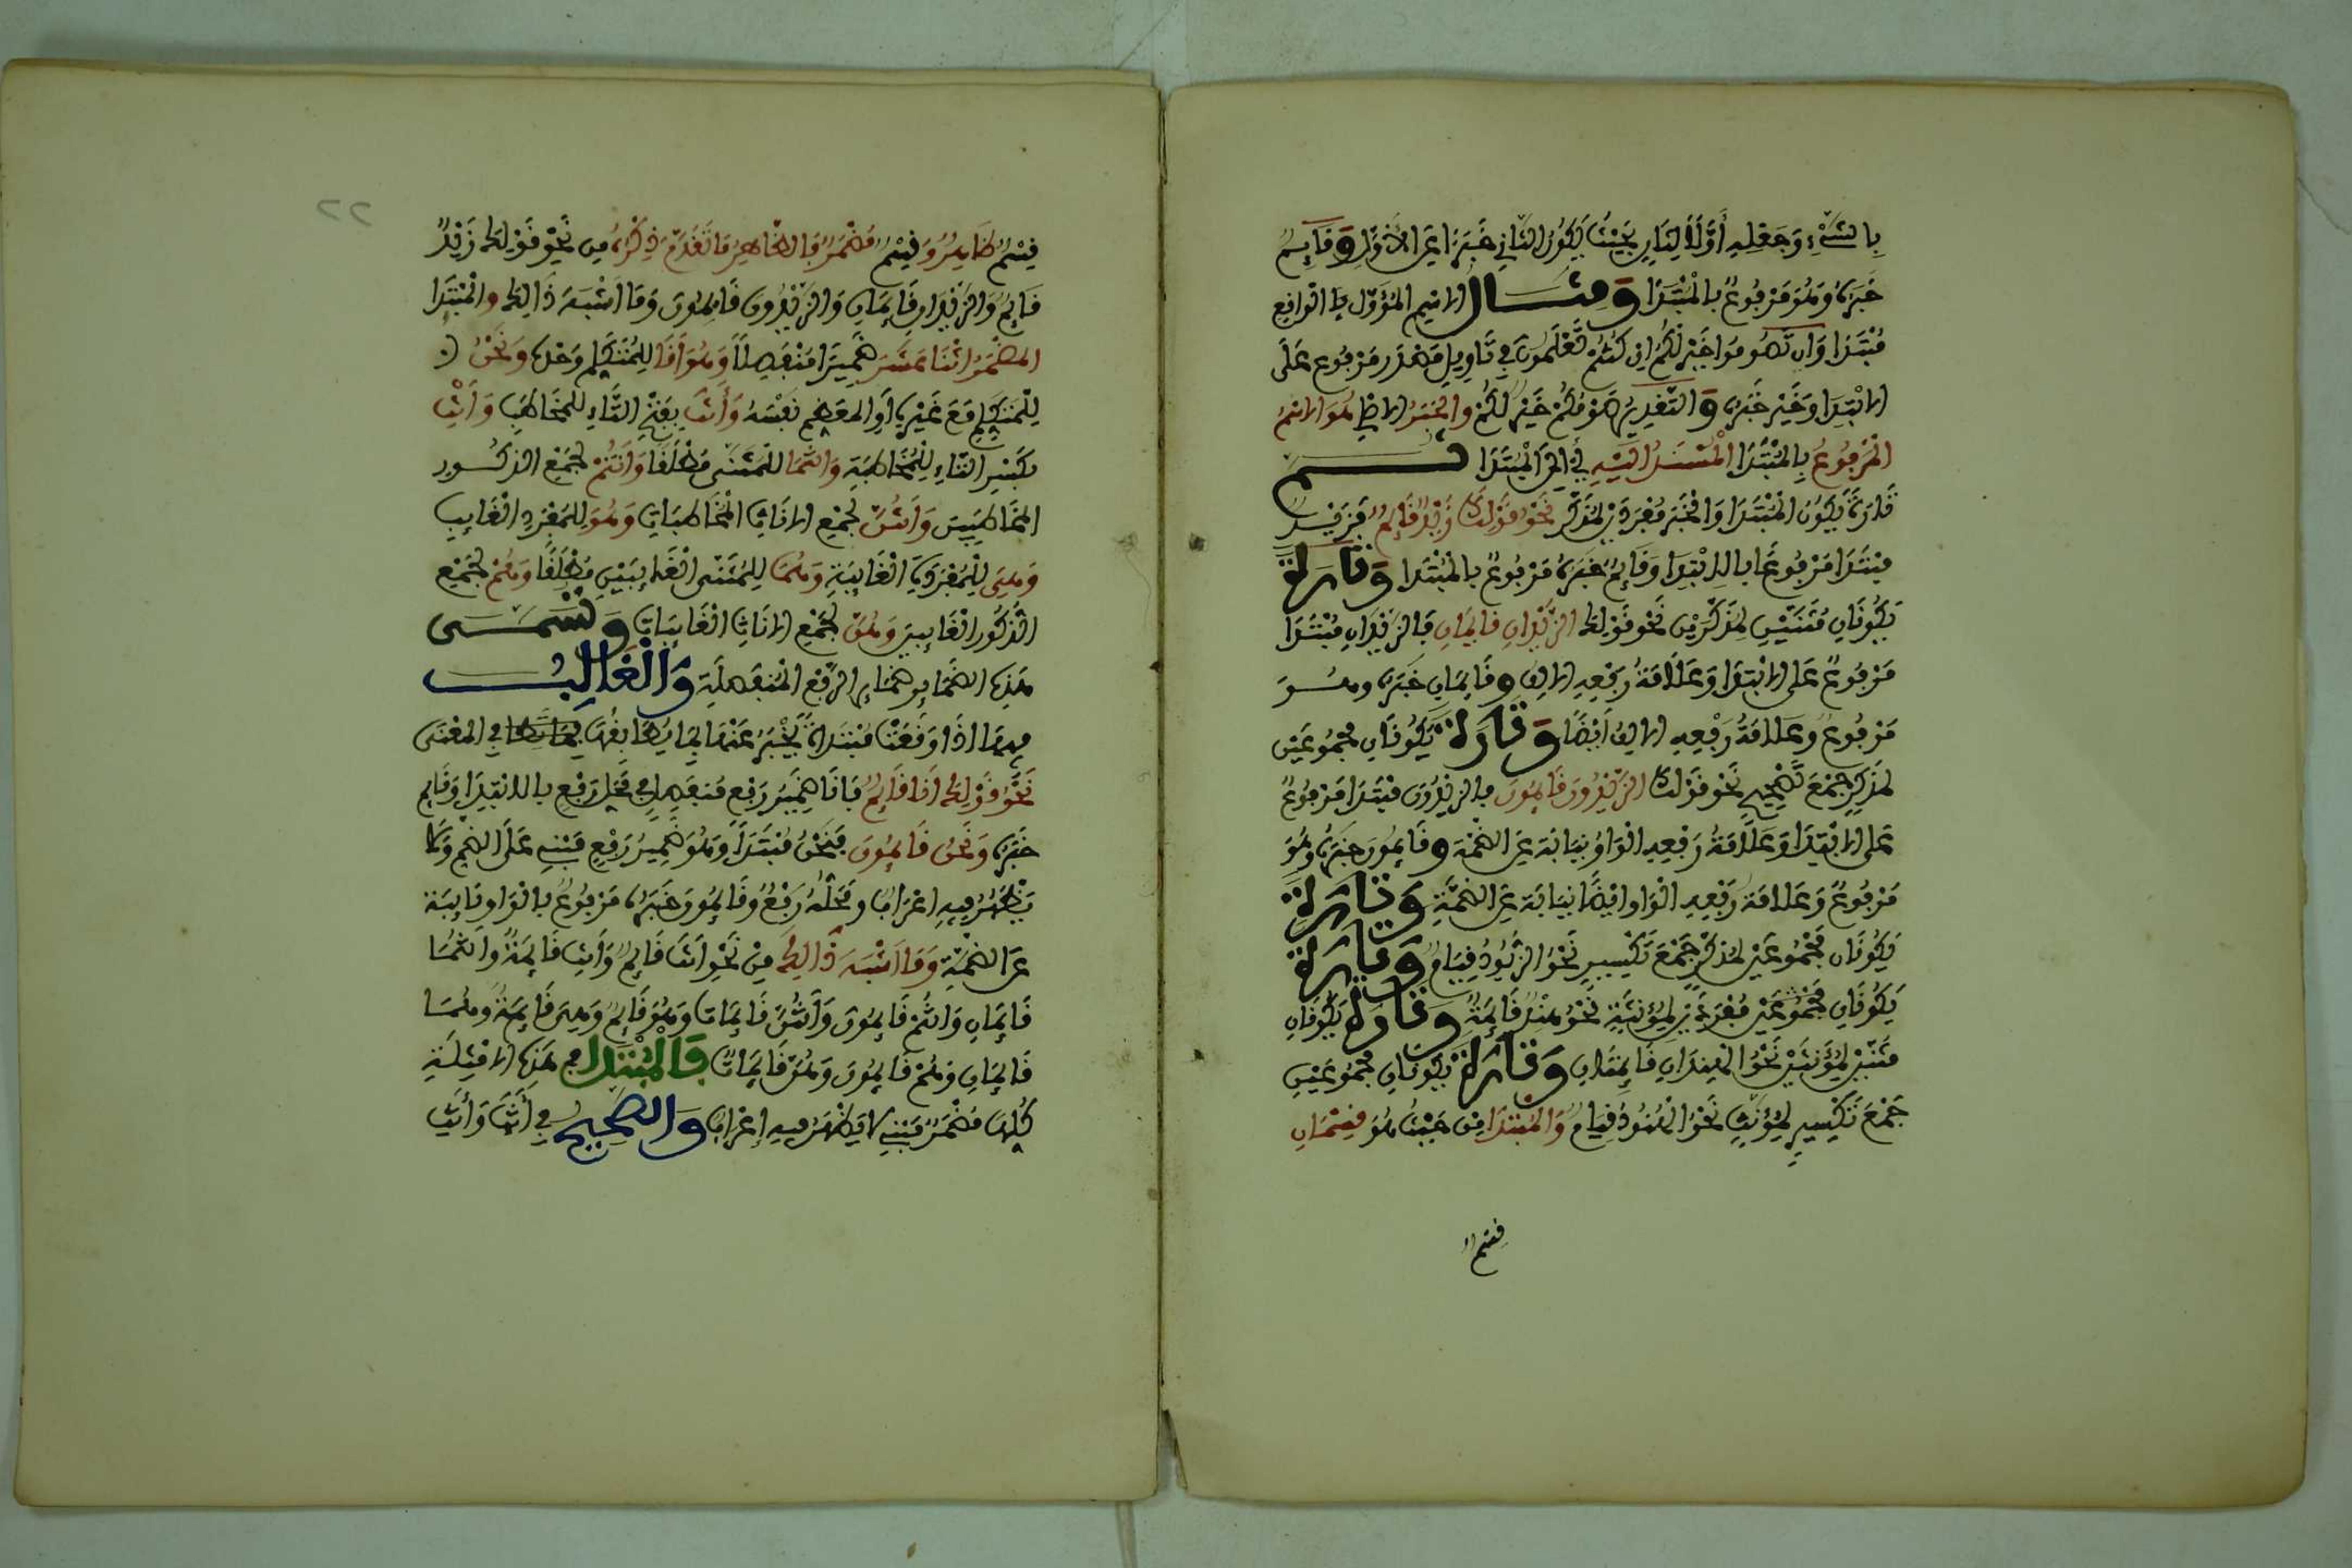 بِالشَّيْءِ وَجَعْلِهِ أَوَّلًا لِثَانٍ بِحَيْثُ يَكُونُ الثَّانِي خَبَرًا عَنِ الأَوَّلِ وَقَائِمٌ
خَبَرُهُ وَهُوَ مَرْفُوعٌ بِالْمُبْتَدَإِ وَمِثَالُ الاسْمِ الْمُؤَوَّلِ الْوَاقِعِ
مُبْتَدَأ وَأَن تَصُومُوا خَيْرٌ لَكُمْ إِن كُنتُمْ تَعْلَمُونَ فِي تَاوِيلِ مَصْدَرٍ مَرْفُوعٍ عَلَى
الابْتِدَا وَخَيْر خَبَرُهُ وَالتَّقْدِيرُ صَوْمُكُمْ خَيْرٌ لَكُمْ وَالْخَبَرُ هُوَ الاسْمُ
الْمَرْفُوعُ بِالْمُبْتَدَا الْمُسْنَدُ إِلَيْهِ أَيْ إِلَى الْمُبْتَدَا ثُمَّ
تَارَةً يَكُونُ الْمُبْتَدَا وَالْخَبَر مُفْرَدَيْنِ لِمُذَكَّر نَحْوُ قَوْلِكَ زَيْدٌ قَائِمٌ فَزَيْدٌ
مُبْتَدَا مَرْفُوعٌ بِالابْتِدَا وَقَائِمٌ خَبَرُهُ مَرْفُوعٌ بِالْمُبْتَدَا وَتَارَةً
يَكُونَانِ مُثَنَّيَيْنِ لِمُذَكَّرَيْنِ نَحْو قَوْلِكَ الزَّيْدَانِ قَائِمَانِ فَالزَّيْدَانِ مُبْتَدَا
مَرْفُوعٌ عَلَى الابْتِدَا وَعَلَامَةُ رَفْعِهِ الألِفُ وَقَائِمَانِ خَبَرُهُ وَهُوَ
مَرْفُوعٌ وَعَلَامَةُ رَفْعِهِ الألِفُ أَيْضًا وَتَارَةً يَكُونَانِ مَجْمُوعَيْنِ
لِمُذَكَّرٍ جَمْعَ تَصْحِيحٍ نَحْوَ قَوْلِكَ الزَّيْدُونَ قَائِمُونَ فَالزَّيْدُونَ مُبْتَدَا مَرْفُوعٌ
عَلَى الابْتِدَا وَعَلَامَةُ رَفْعِهِ الْوَاوُ نِيَابَةً عَنِ الضَّمَّة وَقَائِمُونَ خَبَرُهُ وَهُوَ
مَرْفُوعٌ وَعَلَامَة رَفْعِهِ الْوَاو أَيْضًا نِيَابَة عَنِ الضَّمَّةِ وَتَارَةً
يَكُونَانِ مَجْمُوعَيْنِ لِمُذَكَّرٍ جَمْعَ تَكْسِيرٍ نَحْوُ الزُّيُودُ قِيَامٌ وَتَارَةً
يَكُونَانِ مَجْمُوعَيْنِ مُفْرَدَيْنِ لِمُؤَنَّثَةٍ نَحْوُ هِنْدٌ قَائِمَةٌ وَتَارَةً يَكُونَانِ
مُثَنَّيَيْنِ لِمُؤَنَّثَيْنِ نَحْوُ الْهِنْدَانِ قَائِمَتَانِ وَتَارَةً يَكُونَانِ مَجْمُوعَيْنِ
جَمْعَ تَكْسِيرٍ لِمُؤَنَّثٍ نَحْوُ الْهُنُودُ قِيَامٌ وَالْمُبْتَدَا مِنْ حَيْثُ هُوَ قِسْمَانِ
قِسْمٌ
٢٢
قِسْمٌ ظَاهِرٌ وَقِسْمٌ مُضْمَرٌ فَالظَّاهِرُ مَا تَقَدَّمَ ذِكْرُهُ مِنْ نَحْوِ قَوْلِكَ زَيْدٌ
قَائِمٌ وَالزَّيْدَانِ قَائِمَانِ وَالزَّيْدُونَ قَائِمُونَ وَمَا أَشْبَهَ ذَالِكَ وَالْمُبْتَدَا
الْمُضْمَرُ اثْنَا عَشَرَ ضَمِيرًا مُنْفَصِلًا وَهُوَ أَنَا لِلْمُتَكَلِّمِ وَحْدَهُ وَنَحْنُ
لِلْمُتَكَلِّمِ مَعَ غَيْرِهِ أَوِ الْمُعَظِّمِ نَفْسَهُ وَأَنْتَ بِفَتْحِ التَّاءِ لِلْمُخَاطَبِ وَأَنْتِ
بِكَسْرِ التَّاءِ لِلْمُخَاطَبَةِ وَأَنْتُمَا لِلْمُثَنَّى مُطْلَقًا وَأَنْتُمْ لِجَمْعِ الذُّكُورِ
الْمُخَاطَبِينَ وَأَنْتُنَّ لِجَمْعِ الإنَاثِ الْمُخَاطَبَاتِ وَهُوَ لِلْمُفْرَدِ الْغَايِبِ
وَهِيَ لِلْمُفْرَدَةِ الْغَايِبَةِ وَهُمَا لِلْمُثَنَّى الْغَايِبَيْنِ مُطْلَقًا وَهُمْ لِجَمْعِ
الذُّكُورِ الْغَايِبِينَ وَهُنَّ لِجَمْعِ الإنَاثِ الْغَايِبَاتِ وَتُسَمَّى
هَذِهِ الضَّمَايِر ضَمَايِر الرَّفْعِ الْمُنْفَصِلَةِ وَالْغَالِبُ
فِيهَا إِذَا وَقَعَتْ مُبْتَدَأَةً يُخْبَرُ عَنْهَا بِمَا يُطَابِقُهَا فِي الْمَعْنَى
نَحْوُ قَوْلِكَ أَنَا قَائِمٌ فَأَنَا ضَمِيرُ رَفْعٍ مُنْفَصِلٌ فِي مَحَلِّ رَفْعٍ بِالابْتِدَا وَقَائِم
خَبَرُهُ وَنَحْنُ قَائِمُونَ فَنَحْنُ مُبْتَدَأٌ وَهُوَ ضَمِيرُ رَفْعٍ مَبْنِي عَلَى الضَّمِّ وَلَا
يَظْهَرُ فِيهِ إِعْرَابٌ وَمَحَلُّهُ رَفْعٌ وَقَائِمُونَ خَبَرُهُ مَرْفُوعٌ بِالْوَاوِ نِيَابَة
عَنِ الضَّمَّةِ وَمَا أَشْبَهَ ذَالِكَ مِنْ نَحْوِ أَنْتَ قَائِمٌ وَأَنْتِ قَائِمَةٌ وَأَنْتُمَا
قَائِمَانِ وَأَنْتُمْ قَائِمُونَ وَأَنْتُنَّ قَائِمَاتٌ وَهُوَ قَائِمٌ وَهِيَ قَائِمَةٌ وَهُمَا
قَائِمَانِ وَهُمْ قَائِمُونَ وَهُنَّ قَائِمَاتٌ فَالْمُبْتَدَا فِي هَذِهِ الأمْثِلَةِ
كُلِّهَا مُضْمَرٌ مَبْنِيٌّ لَا يَظْهَرُ فِيهِ إِعْرَابٌ وَالصَّحِيحُ فِي أَنْتَ وَأَنْتِ